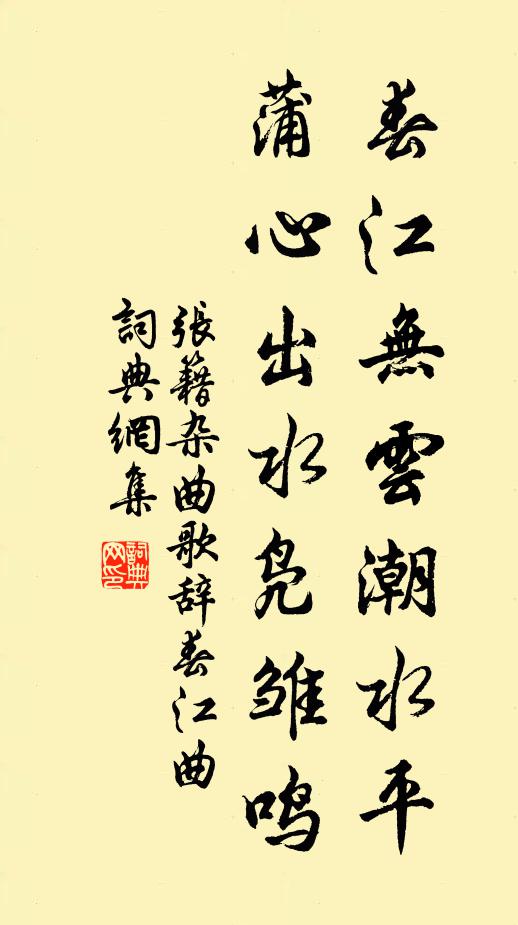 春江無雲潮水平
蒲心出水凫雛鸣
張籍杂曲歌辞春江曲
詞典網集
詞典网印